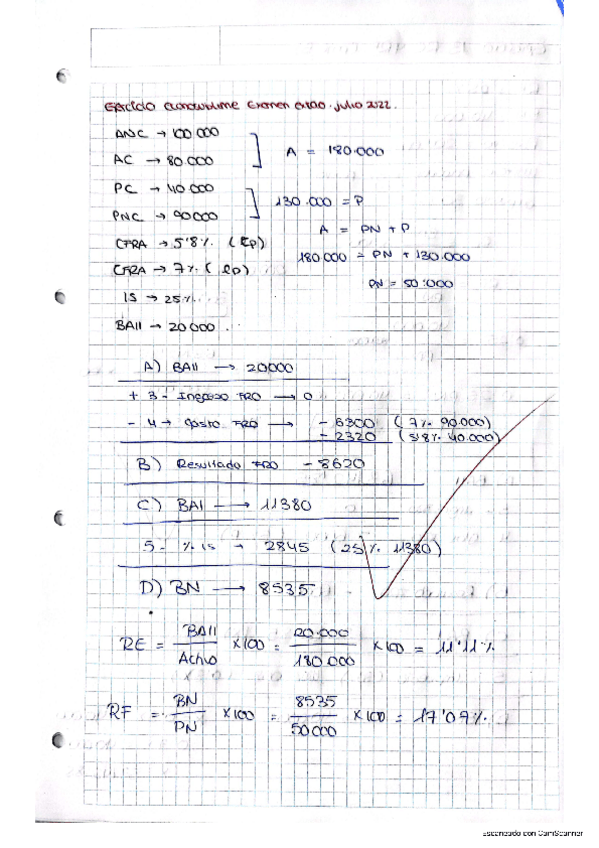 Ejercicio Examen julio 2022.
ANC → 100 000
AC → 80.000
A = 180.000
PC → 40 000
PNC → 90000
130.000 = P
A = PN + P
CFRA → 5'8% (cp)
180 000 = PN + 130.000
CFRA → 7% (lp)
PN = 50.000
IS → 25%.
BAII → 20 000.
A) BAII → 20000
+ 3 - Ingreso FRO → 0
- 4 → Gasto FRO → - 6300 (7% 90.000)
- 2320 (5'8% 40.000)
B) Resultado FRO - 8620
C) BAI → 11380
5. % IS → 2845 (25% 11380)
D) BN → 8535.
RE = BAII / Activo ×100 = 20.000 / 180.000 ×100 = 11'11%
RF = BN / PN ×100 = 8535 / 50000 ×100 = 17'07%.
Escaneado con CamScanner